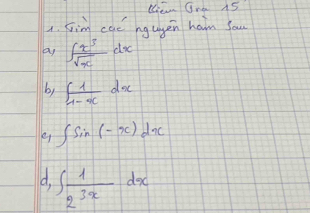 Kiểm Tra 15
1. Tìm các nguyên hàm sau
a, ∫ x³/√x dx
b, ∫ 1/(1-x) dx
c, ∫ Sin (-x) dx
d, ∫ 1/2^(3x) dx